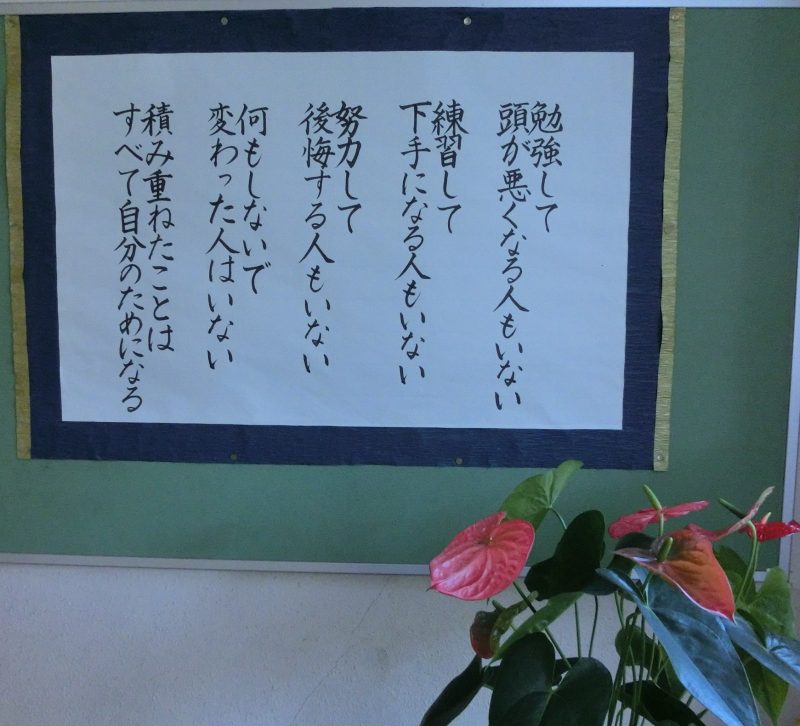 勉強して
頭が悪くなる人もいない
練習して
下手になる人もいない
努力して
後悔する人もいない
何もしないで
変わった人はいない
積み重ねたことは
すべて自分のためになる